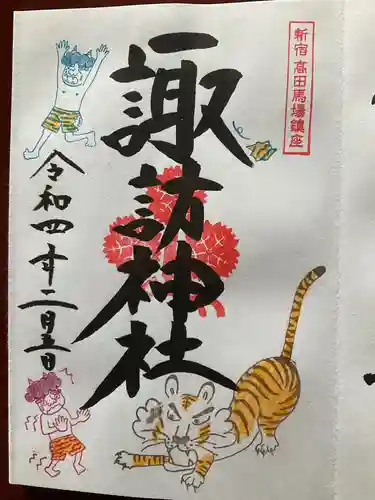 新宿高田馬場鎮座
諏訪神社
令和四年二月五日